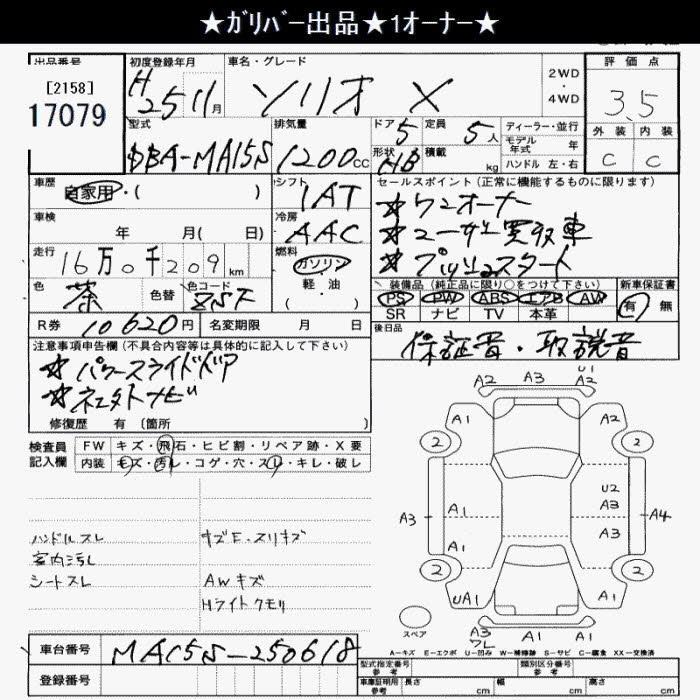 ★ｶﾞﾘﾊﾞｰ出品★1オーナー★
出品番号 初度登録年月 車名・グレード 評価点
[2158]
17079
H25 11月 ソリオ X 2WD・4WD 3.5
型式 排気量 ドア 5 定員 5人 ディーラー・並行 外装 内装
DBA-MA15S 1200cc 形状 HB 積載 kg モデル年式 年 C C
ハンドル 左・右
車歴 自家用・( ) シフト 1AT セールスポイント(正常に機能するものに限ります)
車検 年 月( 日) 冷房 AAC ★ワンオーナー
★ユーザー買取車
走行 16万0千209km 燃料 ガソリン・軽・油( ) ★プッシュスタート
色 茶 色替 色コード ZSF 装備品(純正品に限り○をつけて下さい) 新車保証書
PS PW ABS エアB AW 有・無
SR ナビ TV 本革
R券 10620円 名変期限 月 日 後日品
保証書・取説書
注意事項申告欄(不具合内容等は具体的に記入して下さい)
★パワースライドドア
★社外ナビ
修復歴 有 〔箇所 〕
検査員記入欄 FW キズ・飛石・ヒビ割・リペア跡・X要
内装 キズ・汚レ・コゲ・穴・スレ・キレ・破レ
ハンドルスレ キズE・スリキズ
室内汚レ
シートスレ AWキズ
Hライトクモリ
A2 A3 U1
A2
A1 A2
2 2
A1 U2
A3 A3 A4
A1 A3
2 2
UA1 A1
スペア A3 ワレ A1 A1
A－キズ E－エクボ U－凹み W－補修跡 S－サビ C－腐食 XX－交換済
車台番号 MA15S-250618
型式指定番号 参考 類別区分番号 参考
登録番号 車庫証明用 参考 長さ cm 幅 cm 高さ cm